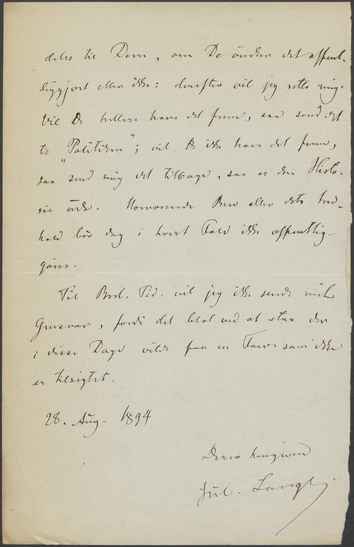 deles til Dem, om De ønsker det offent-
liggjort eller ikke: derefter vil jeg rette mig.
Vil De hellere have det frem, saa send det
til "Politiken"; vil De ikke have det frem,
saa send mig det tilbage, saa er den Histo-
rie ude. Nærværende Brev eller dets Ind-
hold bør dog i hvert Fald ikke offentlig-
gøres.
Til Berl. Tid. vil jeg ikke sende
Gensvar, fordi det blot ved at staa der
i disse Dage vilde faa en Farve som ikke
er tilsigtet.
28. Aug. 1894
Deres hengivne
Jul. Lange.